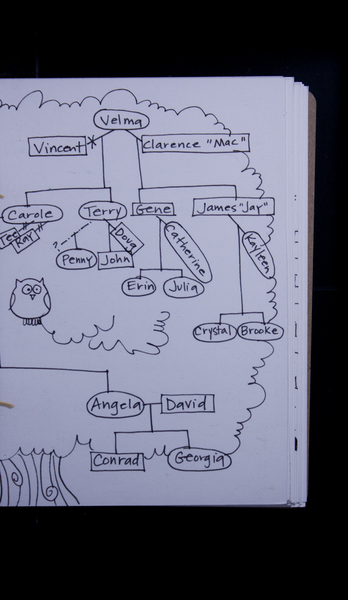 Velma
Vincent
Clarence "Mac"
Carole
Terry
Gene
James "Jay"
Ray
Doug
Catherine
Kayleen
?
Penny
John
Erin
Julia
Crystal
Brooke
Angela
David
Conrad
Georgia